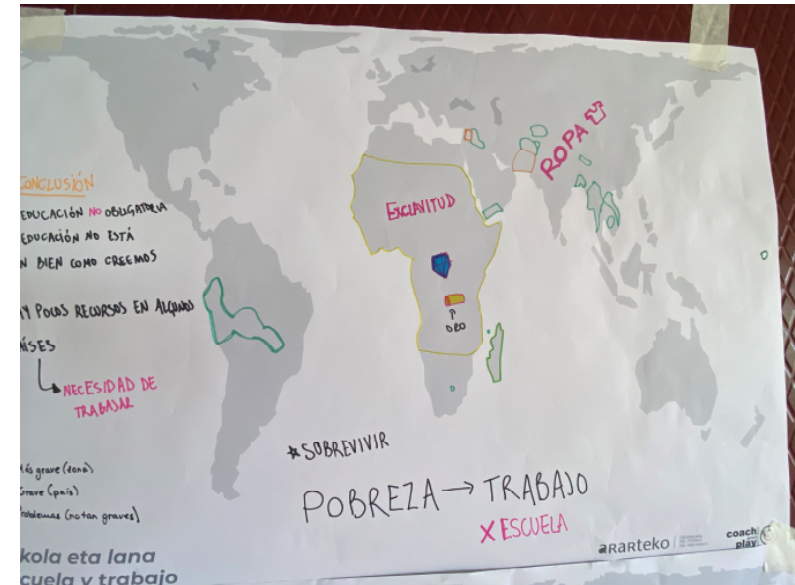 CONCLUSIÓN
EDUCACIÓN NO OBLIGATORIA
EDUCACIÓN NO ESTÁ
N BIEN COMO CREEMOS
Y POCOS RECURSOS EN ALGUNOS
AÍSES
NECESIDAD DE
TRABAJAR
ás grave (zona)
Grave (país)
roblemas (no tan graves)
kola eta lana
cuela y trabajo
ESCLAVITUD
ORO
ROPA
*SOBREVIVIR
POBREZA → TRABAJO
X ESCUELA
aRaRteko
coach
play